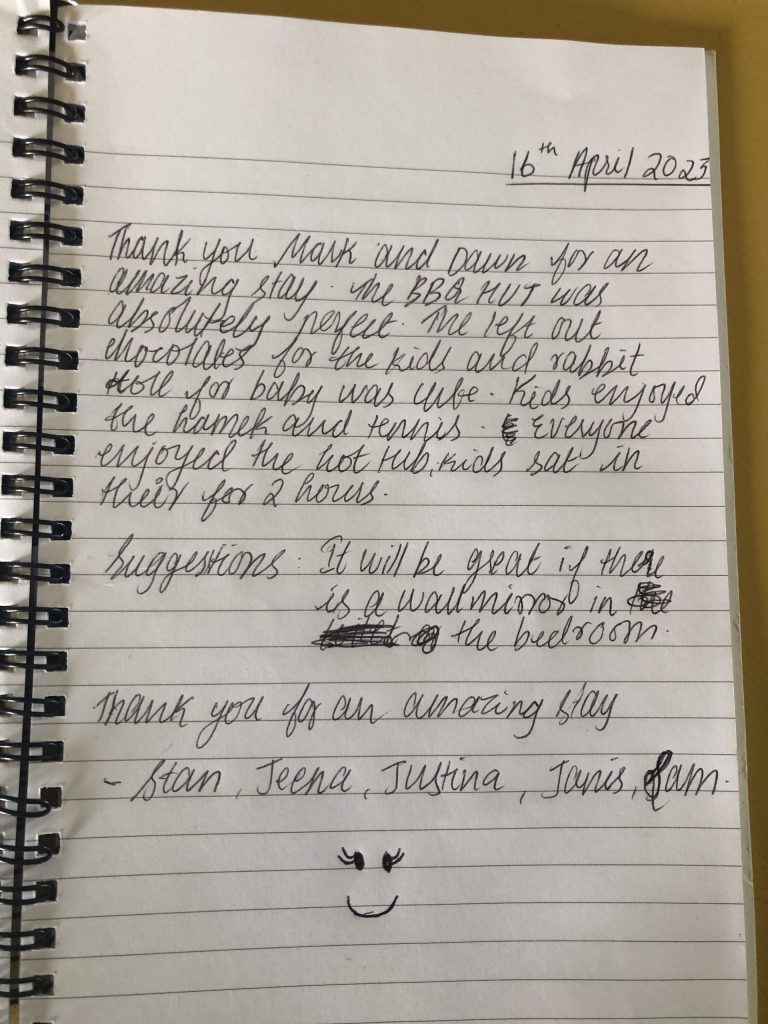 16th April 2023
Thank you Mark and Dawn for an
amazing stay. The BBQ HUT was
absolutely perfect. The left out
chocolates for the kids and rabbit
for baby was cute. Kids enjoyed
the hamek and tennis. Everyone
enjoyed the hot tub, kids sat in
their for 2 hours.
Suggestions: It will be great if there
is a wall mirror in
the bedroom.
Thank you for an amazing stay
- Stan, Jeena, Justina, Janis, Sam.